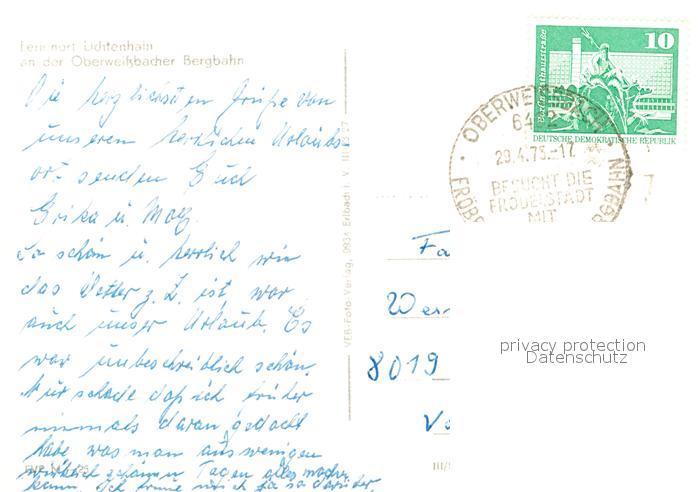 Ferienort Lichtenhain
an der Oberweißbacher Bergbahn
Die herzliebsten Grüße von
unserem herrlichen Urlaubs
ort senden Euch
Erika u.
So schön u. herrlich wie
das Wetter z. Z. ist, war
auch unser Urlaub. Es
war unbeschreiblich schön.
Nur schade daß ich früher
niemals daran gedacht
habe was man aus wenigen
wirklich schönen Tagen alles machen
kann. Ich freue mich ja so darüber,
VEB-Foto-Verlag, 9934 Erlbach i. V.
10
Berlin, Rathausstraße
DEUTSCHE DEMOKRATISCHE REPUBLIK
OBERWEISSBACH
64
29.4.75.-17
BESUCHT DIE
FRÖBELSTADT
MIT
Fa
Wer
8019
privacy protection
Datenschutz